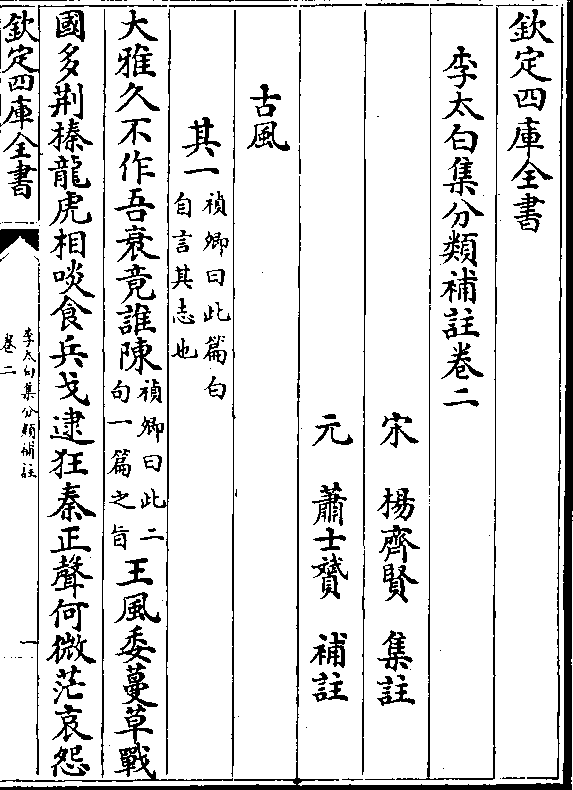 欽定四庫全書
李太白集分類補註卷二
宋 楊齊賢 集註
元 蕭士贇 補註
古風
其一禎卿曰此篇白
自言其志也
大雅久不作吾衰竟誰陳禎卿曰此二
句一篇之旨王風委蔓草戰
國多荆榛龍虎相啖食兵戈逮狂秦正聲何微茫哀怨
欽定四庫全書
李太白集分類補註
卷二
一